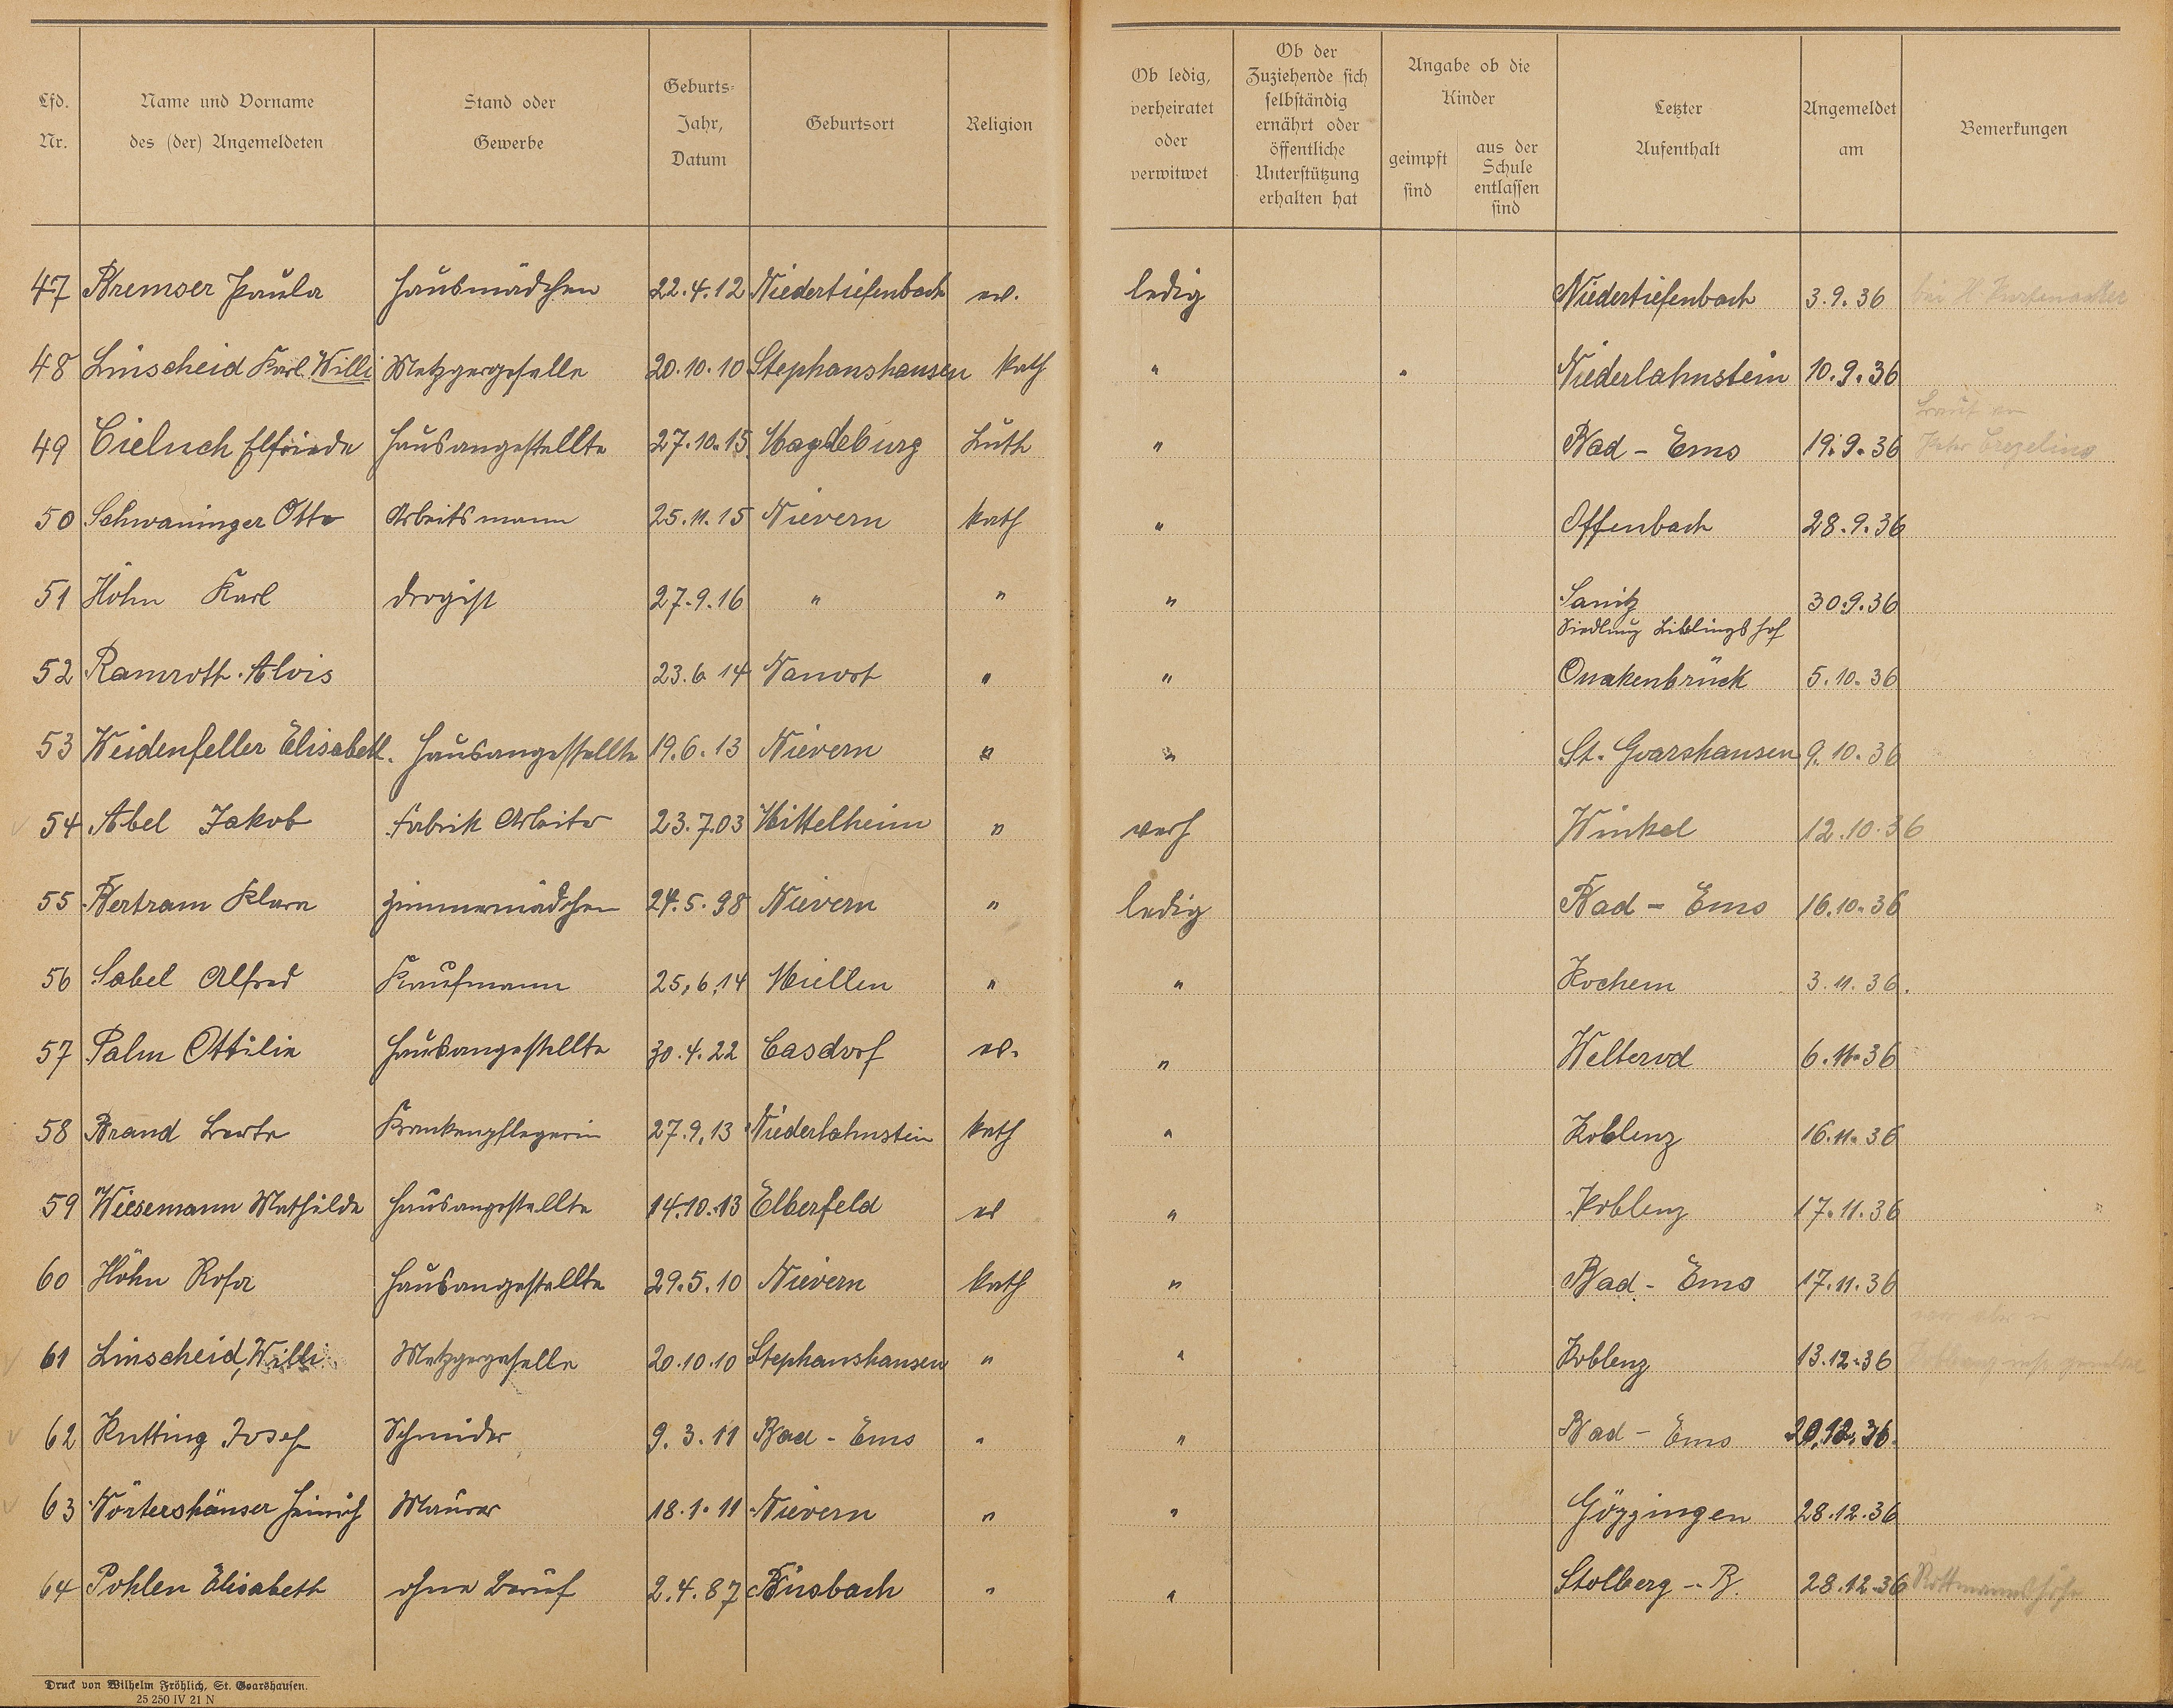 Lfd. Nr.
Name und Vorname des (der) Angemeldeten
Stand oder Gewerbe
Geburts- Jahr, Datum
Geburtsort
Religion
Ob ledig, verheiratet oder verwitwet
Ob der Zuziehende sich selbständig ernährt oder öffentliche Unterstützung erhalten hat
Angabe ob die Kinder
geimpft sind
aus der Schule entlassen sind
Letzter Aufenthalt
Angemeldet am
Bemerkungen
47 Bremser Paula Hausmädchen 22.4.12 Niedertiefenbach ev. ledig Niedertiefenbach 3.9.36 bei H.
48 Linscheid Karl Willi Metzgergeselle 20.10.10 Stephanshausen Kath " " Niederlahnstein 10.9.36
49 Cieluch Elfriede Hausangestellte 27.10.15 Magdeburg Luth " Bad-Ems 19.9.36 Braut von Peter
50 Schwaninger Otto Arbeitsmann 25.11.15 Nievern Kath " Offenbach 28.9.36
51 Höhn Karl Drogist 27.9.16 " " " Sanitz Siedlung Lieblingshof 30.9.36
52 Ramrott Alois 23.6.14 " " Quakenbrück 5.10.36
53 Weidenfeller Elisabeth. Hausangestellte 19.6.13 Nievern " " St. Goarshausen 9.10.36
54 Abel Jakob Fabrik Arbeiter 23.7.03 Mittelheim " verh Winkel 12.10.36
55 Bertram Klara Zimmermädchen 24.5.98 Nievern " ledig Bad-Ems 16.10.36
56 Sabel Alfred Kaufmann 25,6,14 Miellen " " Kochem 3.11.36.
57 Palm Ottilie Hausangestellte 30.4.22 Casdorf ev. " Welterod 6.11.36
58 Brand Berta Krankenpflegerin 27.9.13 Niederlahnstein Kath " Koblenz 16.11.36
59 Wiesemann Mathilde Hausangestellte 14.10.13 Elberfeld ev " Koblenz 17.11.36
60 Höhn Rosa Hausangestellte 29.5.10 Nievern Kath " Bad-Ems 17.11.36
61 Linscheid, Willi Metzgergeselle 20.10.10 Stephanshausen " " Koblenz 13.12.36
62 Kutting Josef Schneider 9.3.11 Bad-Ems " " Bad-Ems 20.12.36.
63 Wörtershäuser Heinrich Maurer 18.1.11 Nievern " " Göggingen 28.12.36
64 Pohlen Elisabeth ohne Beruf 2.4.87 Büsbach " " Stolberg-R. 28.12.36
Druck von Wilhelm Fröhlich, St. Goarshausen.
25 250 IV 21 N